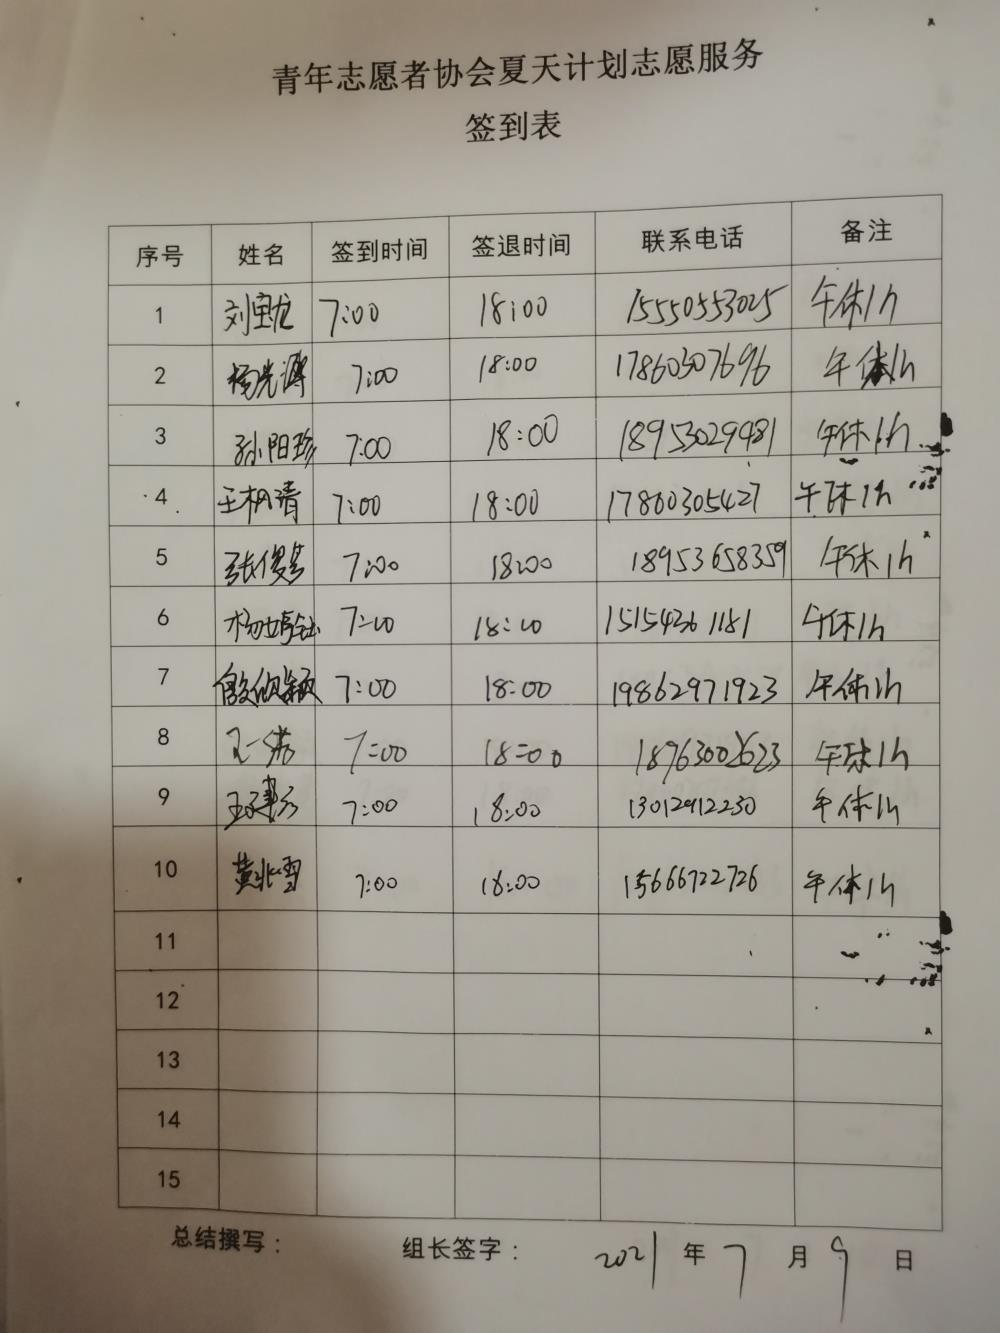 青年志愿者协会夏天计划志愿服务
签到表
序号 姓名 签到时间 签退时间 联系电话 备注
1 刘宝龙 7:00 18:00 15550553025 午休1h
2 杨光 7:00 18:00 17860307696 午休1h
3 孙阳珍 7:00 18:00 18953029481 午休1h
4 王枫清 7:00 18:00 17860305427 午休1h
5 张俊 7:00 18:00 18953658359 午休1h
6 杨婷钰 7:00 18:00 15154361181 午休1h
7 殷欣颖 7:00 18:00 19862971923 午休1h
8 王一诺 7:00 18:00 18963002623 午休1h
9 王建 7:00 18:00 13012912230 午休1h
10 黄兆雪 7:00 18:00 15666722726 午休1h
11
12
13
14
15
总结撰写： 组长签字： 2021 年 7 月 9 日